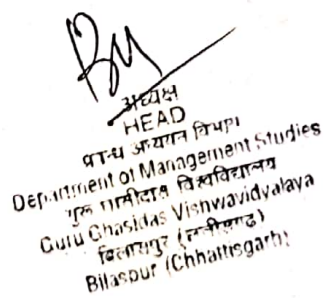 अध्यक्ष
HEAD
प्रबन्ध अध्ययन विभाग
Department of Management Studies
गुरू घासीदास विश्वविद्यालय
Guru Ghasidas Vishwavidyalaya
बिलासपुर (छत्तीसगढ़)
Bilaspur (Chhattisgarh)